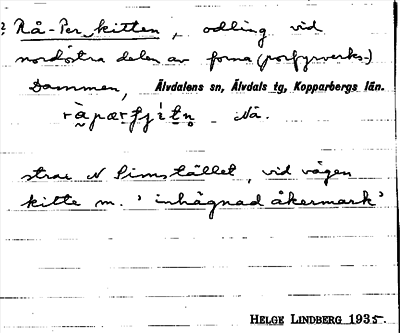 ? Rå-Per kitten, odling vid
nordöstra delen av forna (porfyrverks-)
Dammen, Älvdalens sn, Älvdals tg, Kopparbergs län.
Nå.
strax N Simstället, vid vägen
kitte m. 'inhägnad åkermark'
HELGE LINDBERG 1935.